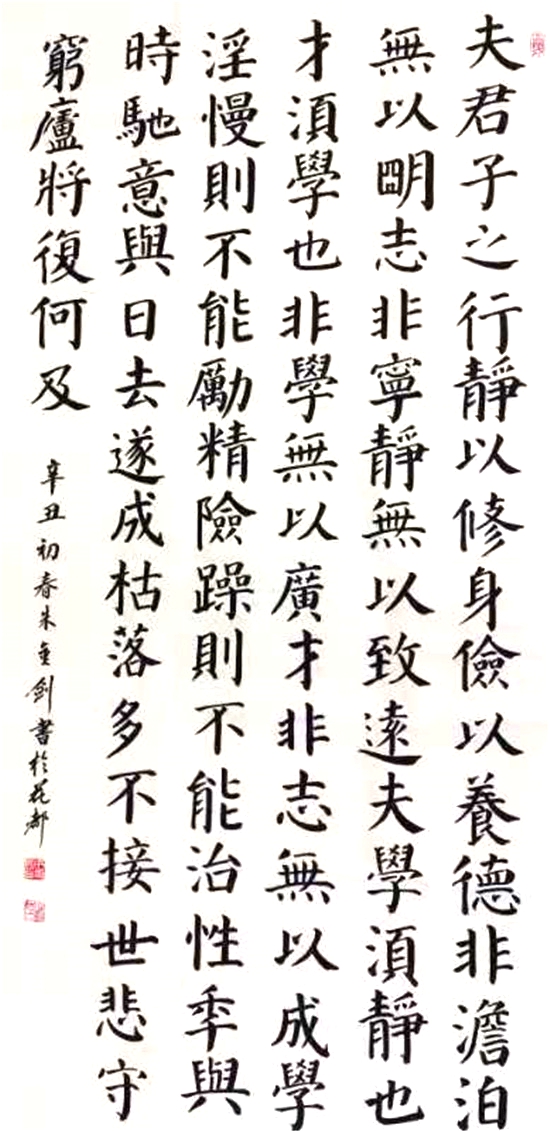 夫君子之行靜以修身儉以養德非澹泊
無以朙志非寧靜無以致遠夫學湏靜也
才湏學也非學無以廣才非志無以成學
淫慢則不能勵精險躁則不能治性秊與
時馳意與日去遂成枯落多不接世悲守
窮廬將復何及
辛丑初春朱金劍書於花都